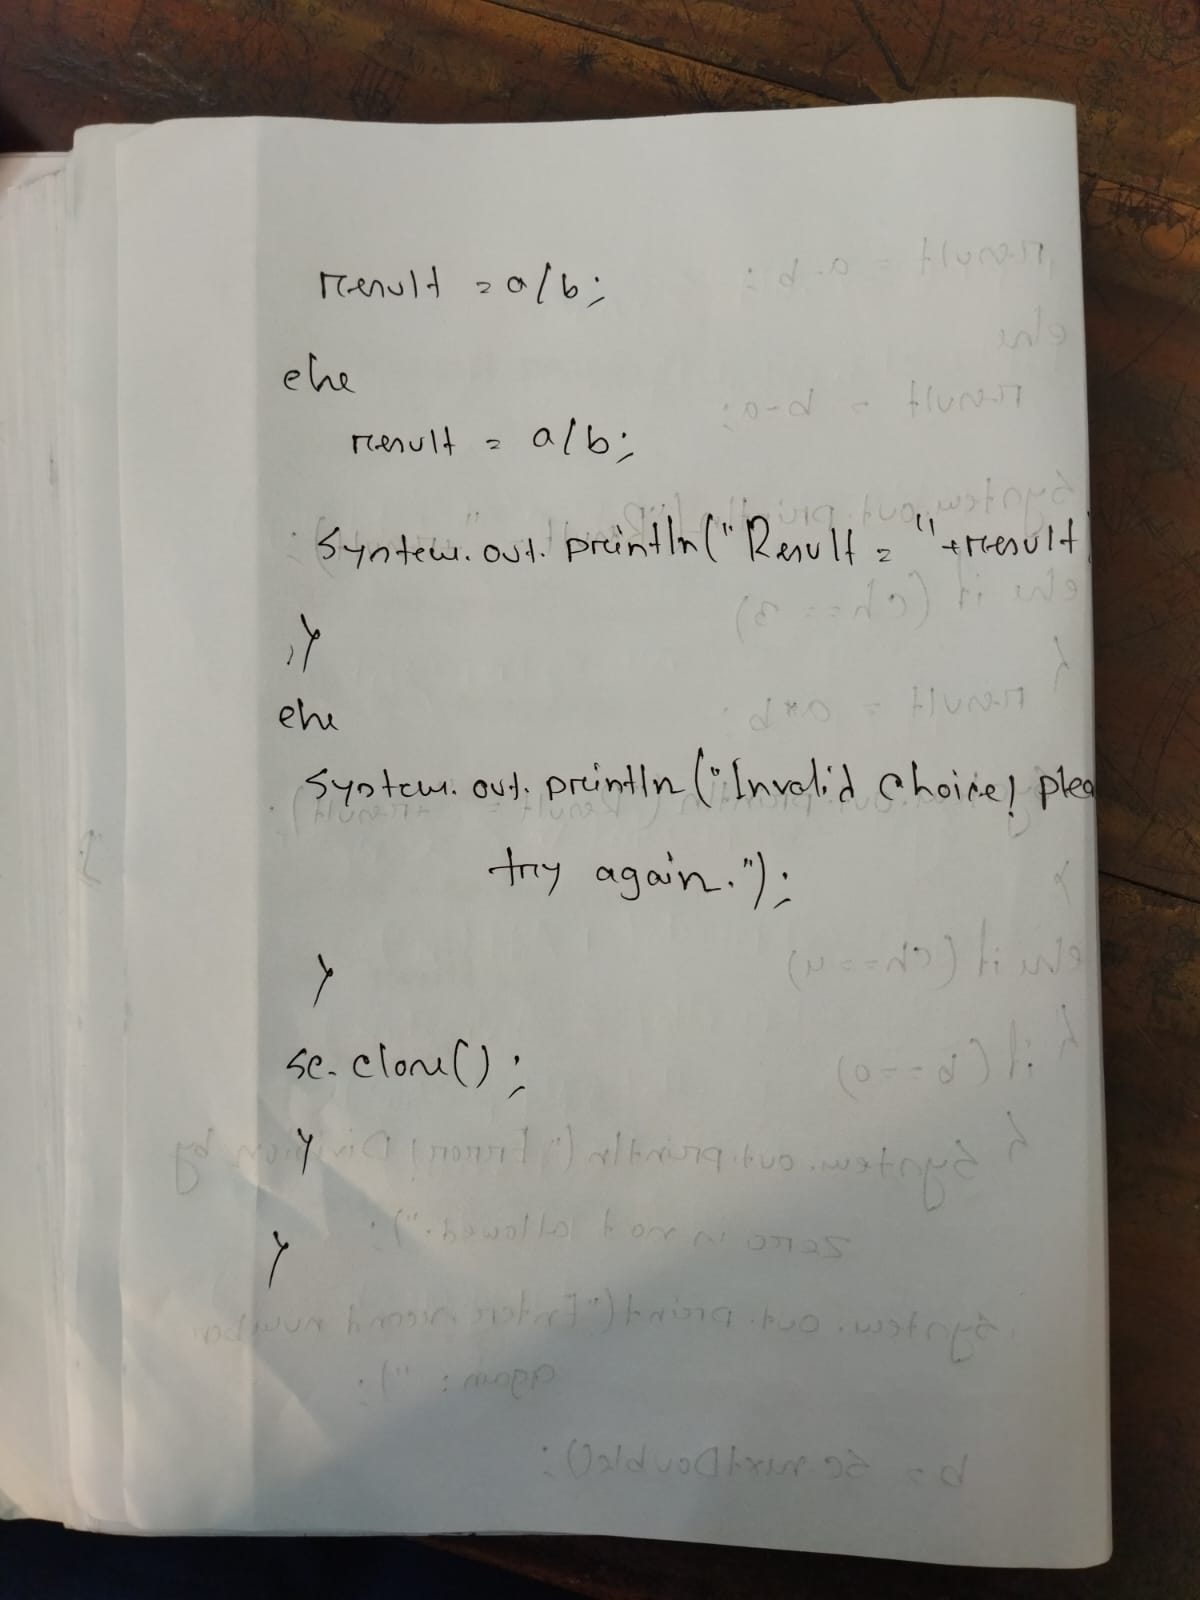 result = a/b;
else
result = a/b;
System.out.println("Result = "+result
}
else
System.out.println("Invalid choice! plea
try again.");
}
sc.close();
}
}